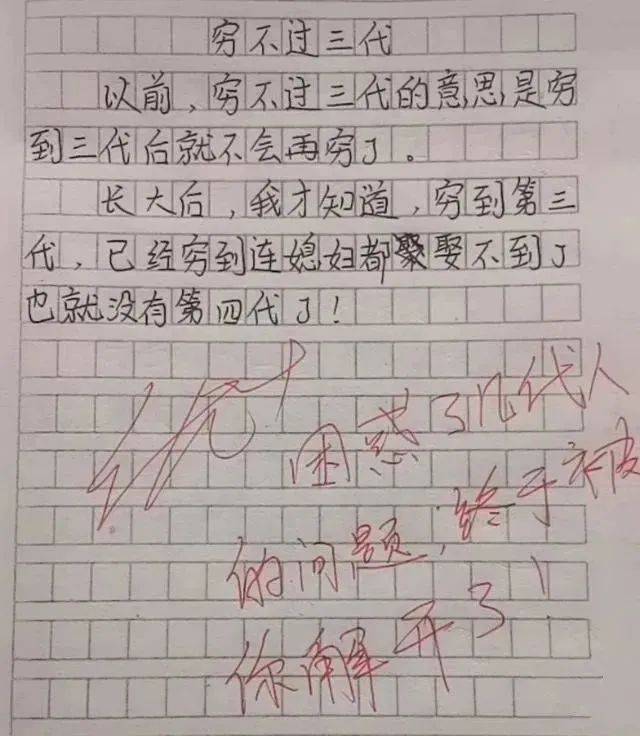 穷不过三代
以前，穷不过三代的意思是穷
到三代后就不会再穷了。
长大后，我才知道，穷到第三
代，已经穷到连媳妇都娶不到了
也就没有第四代了！
优+
困惑了几代人
的问题，终于被
你解开了！